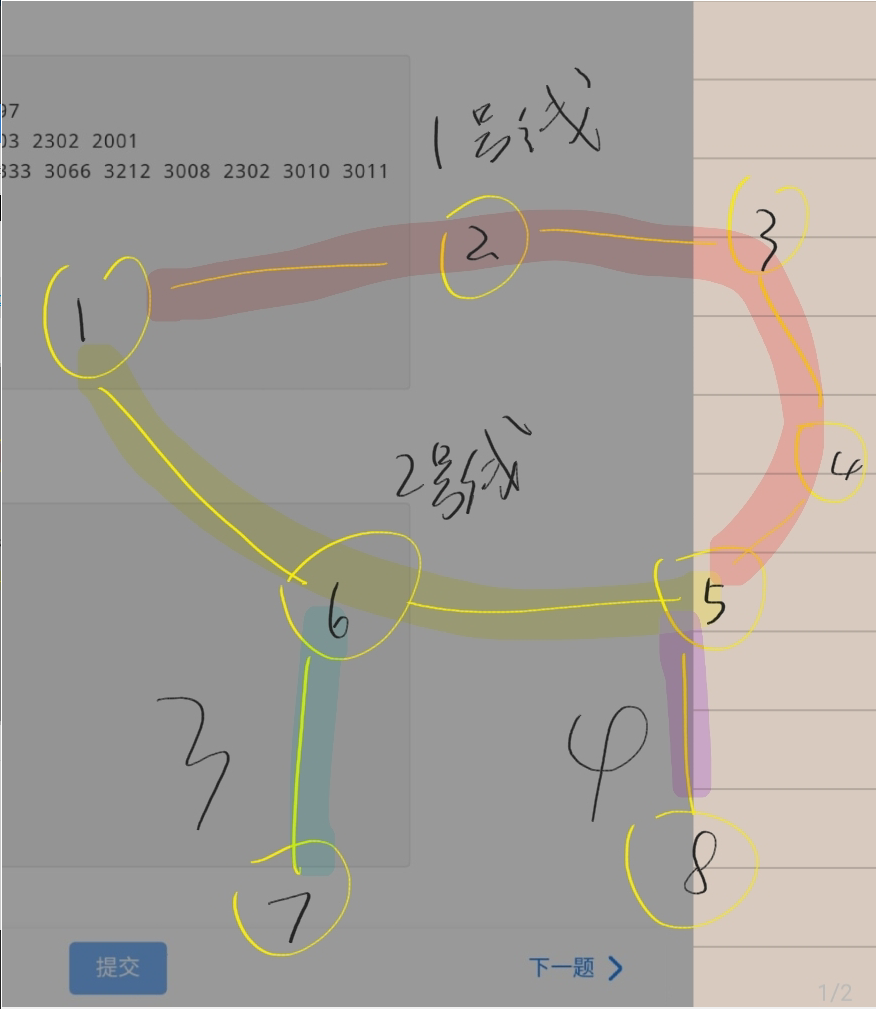 97
03 2302 2001
333 3066 3212 3008 2302 3010 3011
1号线
2
3
1
4
2号线
6
5
3
4
7
8
提交
下一题
1/2